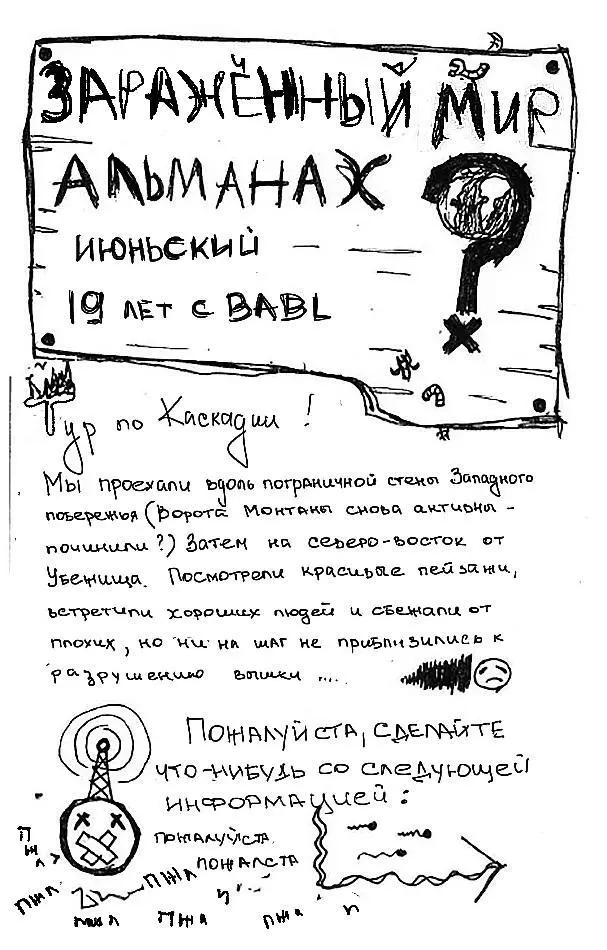 ЗАРАЖЁННЫЙ МИР
АЛЬМАНАХ
ИЮНЬСКИЙ
19 ЛЕТ С BABL
Тур по Каскадии!
Мы проехали вдоль пограничной стены Западного
побережья (Ворота Монтаны снова активны -
починили?) Затем на северо-восток от
Убежища. Посмотрели красивые пейзажи,
встретили хороших людей и сбежали от
плохих, но ни на шаг не приблизились к
разрушению вышки ....
ПОЖАЛУЙСТА, СДЕЛАЙТЕ
ЧТО-НИБУДЬ СО СЛЕДУЮЩЕЙ
ИНФОРМАЦИЕЙ:
ПОЖАЛУЙСТА
ПОЖАЛСТА
ПЖЛ
ПЖЛ
ПЖЛ
ПЖЛ
ПЖЛ
ПЖЛ